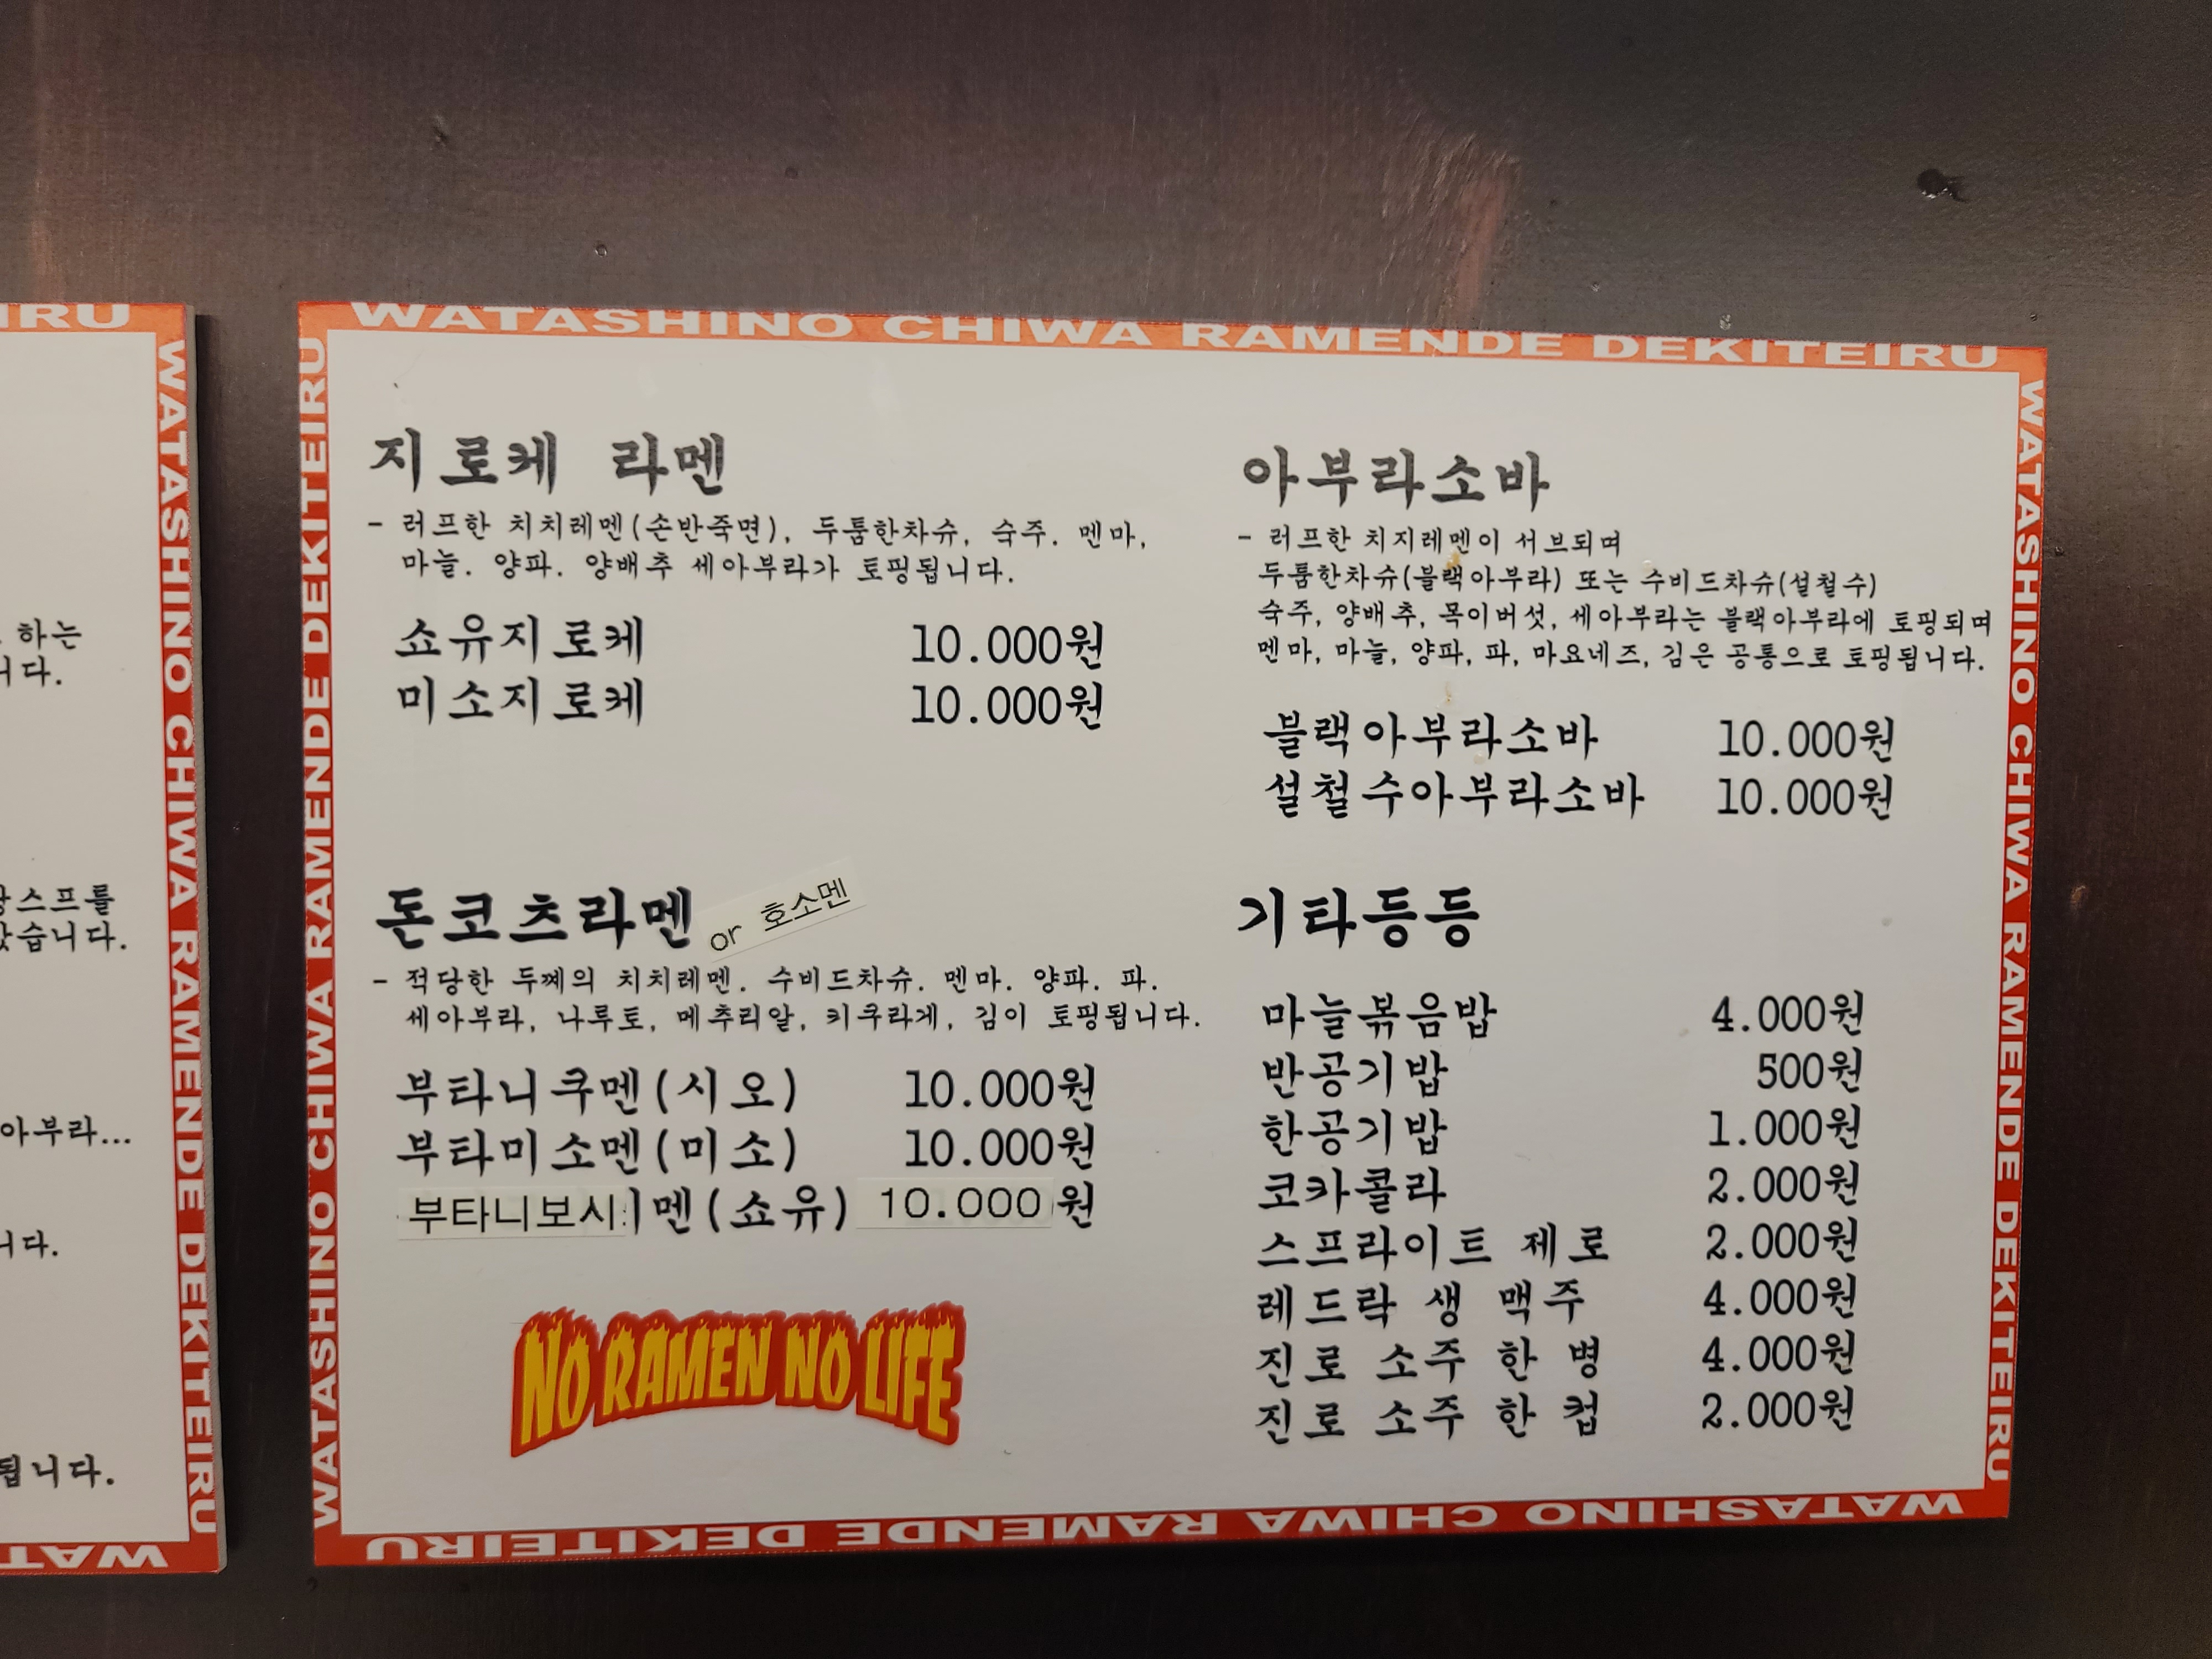 WATASHINO CHIWA RAMENDE DEKITEIRU
WATASHINO CHIWA RAMENDE DEKITEIRU
지로케 라멘
- 러프한 치치레멘(손반죽면), 두툼한차슈, 숙주. 멘마,
마늘. 양파. 양배추 세아부라가 토핑됩니다.
쇼유지로케 10.000원
미소지로케 10.000원
돈코츠라멘 or 호소멘
- 적당한 두께의 치치레멘. 수비드차슈. 멘마. 양파. 파.
세아부라, 나루토, 메추리알, 키쿠라게, 김이 토핑됩니다.
부타니쿠멘(시오) 10.000원
부타미소멘(미소) 10.000원
부타니보시멘(쇼유) 10.000원
NO RAMEN NO LIFE
아부라소바
- 러프한 치지레멘이 서브되며
두툼한차슈(블랙아부라) 또는 수비드차슈(설철수)
숙주, 양배추, 목이버섯, 세아부라는 블랙아부라에 토핑되며
멘마, 마늘, 양파, 파, 마요네즈, 김은 공통으로 토핑됩니다.
블랙아부라소바 10.000원
설철수아부라소바 10.000원
기타등등
마늘볶음밥 4.000원
반공기밥 500원
한공기밥 1.000원
코카콜라 2.000원
스프라이트 제로 2.000원
레드락 생 맥주 4.000원
진로 소주 한 병 4.000원
진로 소주 한 컵 2.000원
WATASHINO CHIWA RAMENDE DEKITEIRU
WATASHINO CHIWA RAMENDE DEKITEIRU
IRU
WATASHINO CHIWA RAMENDE DEKITEIRU
하는
니다.
스프를
습니다.
아부라...
니다.
됩니다.
WAT